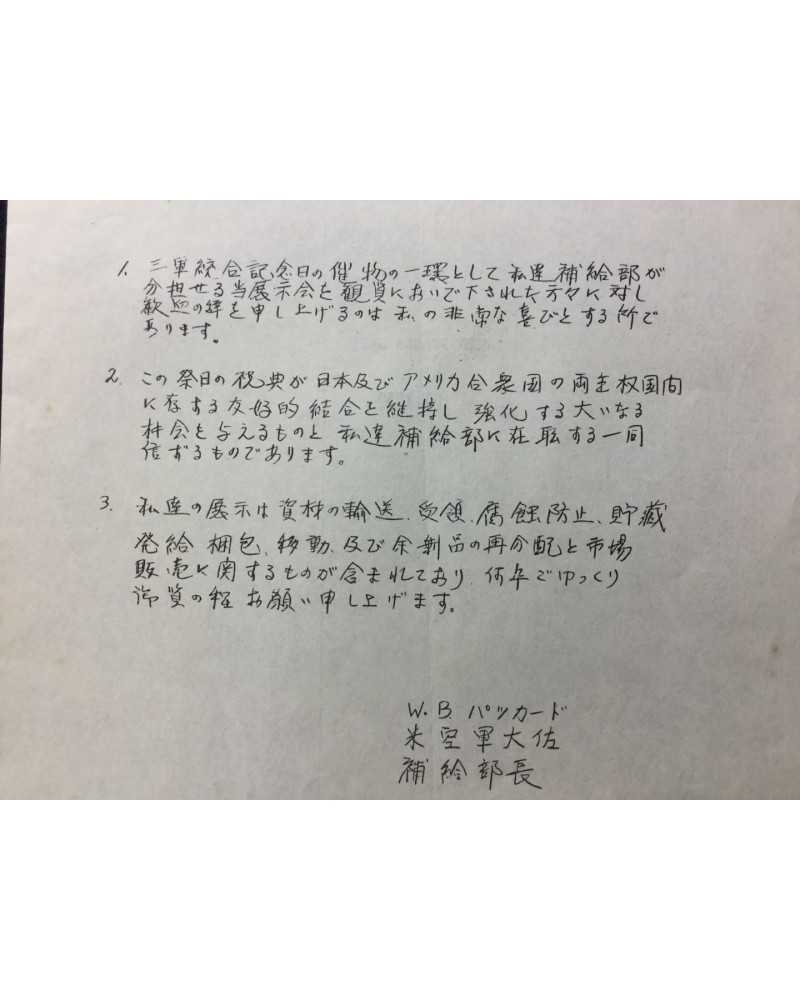 1. 三軍統合記念日の催物の一環として私達補給部が
分担せる当展示会を観覧においで下された方々に対し
歓迎の辞を申し上げるのは私の非常な喜びとする所で
あります。
2. この祭日の祝典が日本及びアメリカ合衆国の両主权国間
に存する友好的結合を維持し強化する大いなる
机会を与えるものと私達補給部に在职する一同
信ずるものであります。
3. 私達の展示は資材の輸送、受領、腐蝕防止、貯蔵
発給、梱包、移動、及び余剰品の再分配と市場
販売に関するものが含まれており、何卒ごゆっくり
御覧の程お願い申し上げます。
W.B. パッカード
米空軍大佐
補給部長